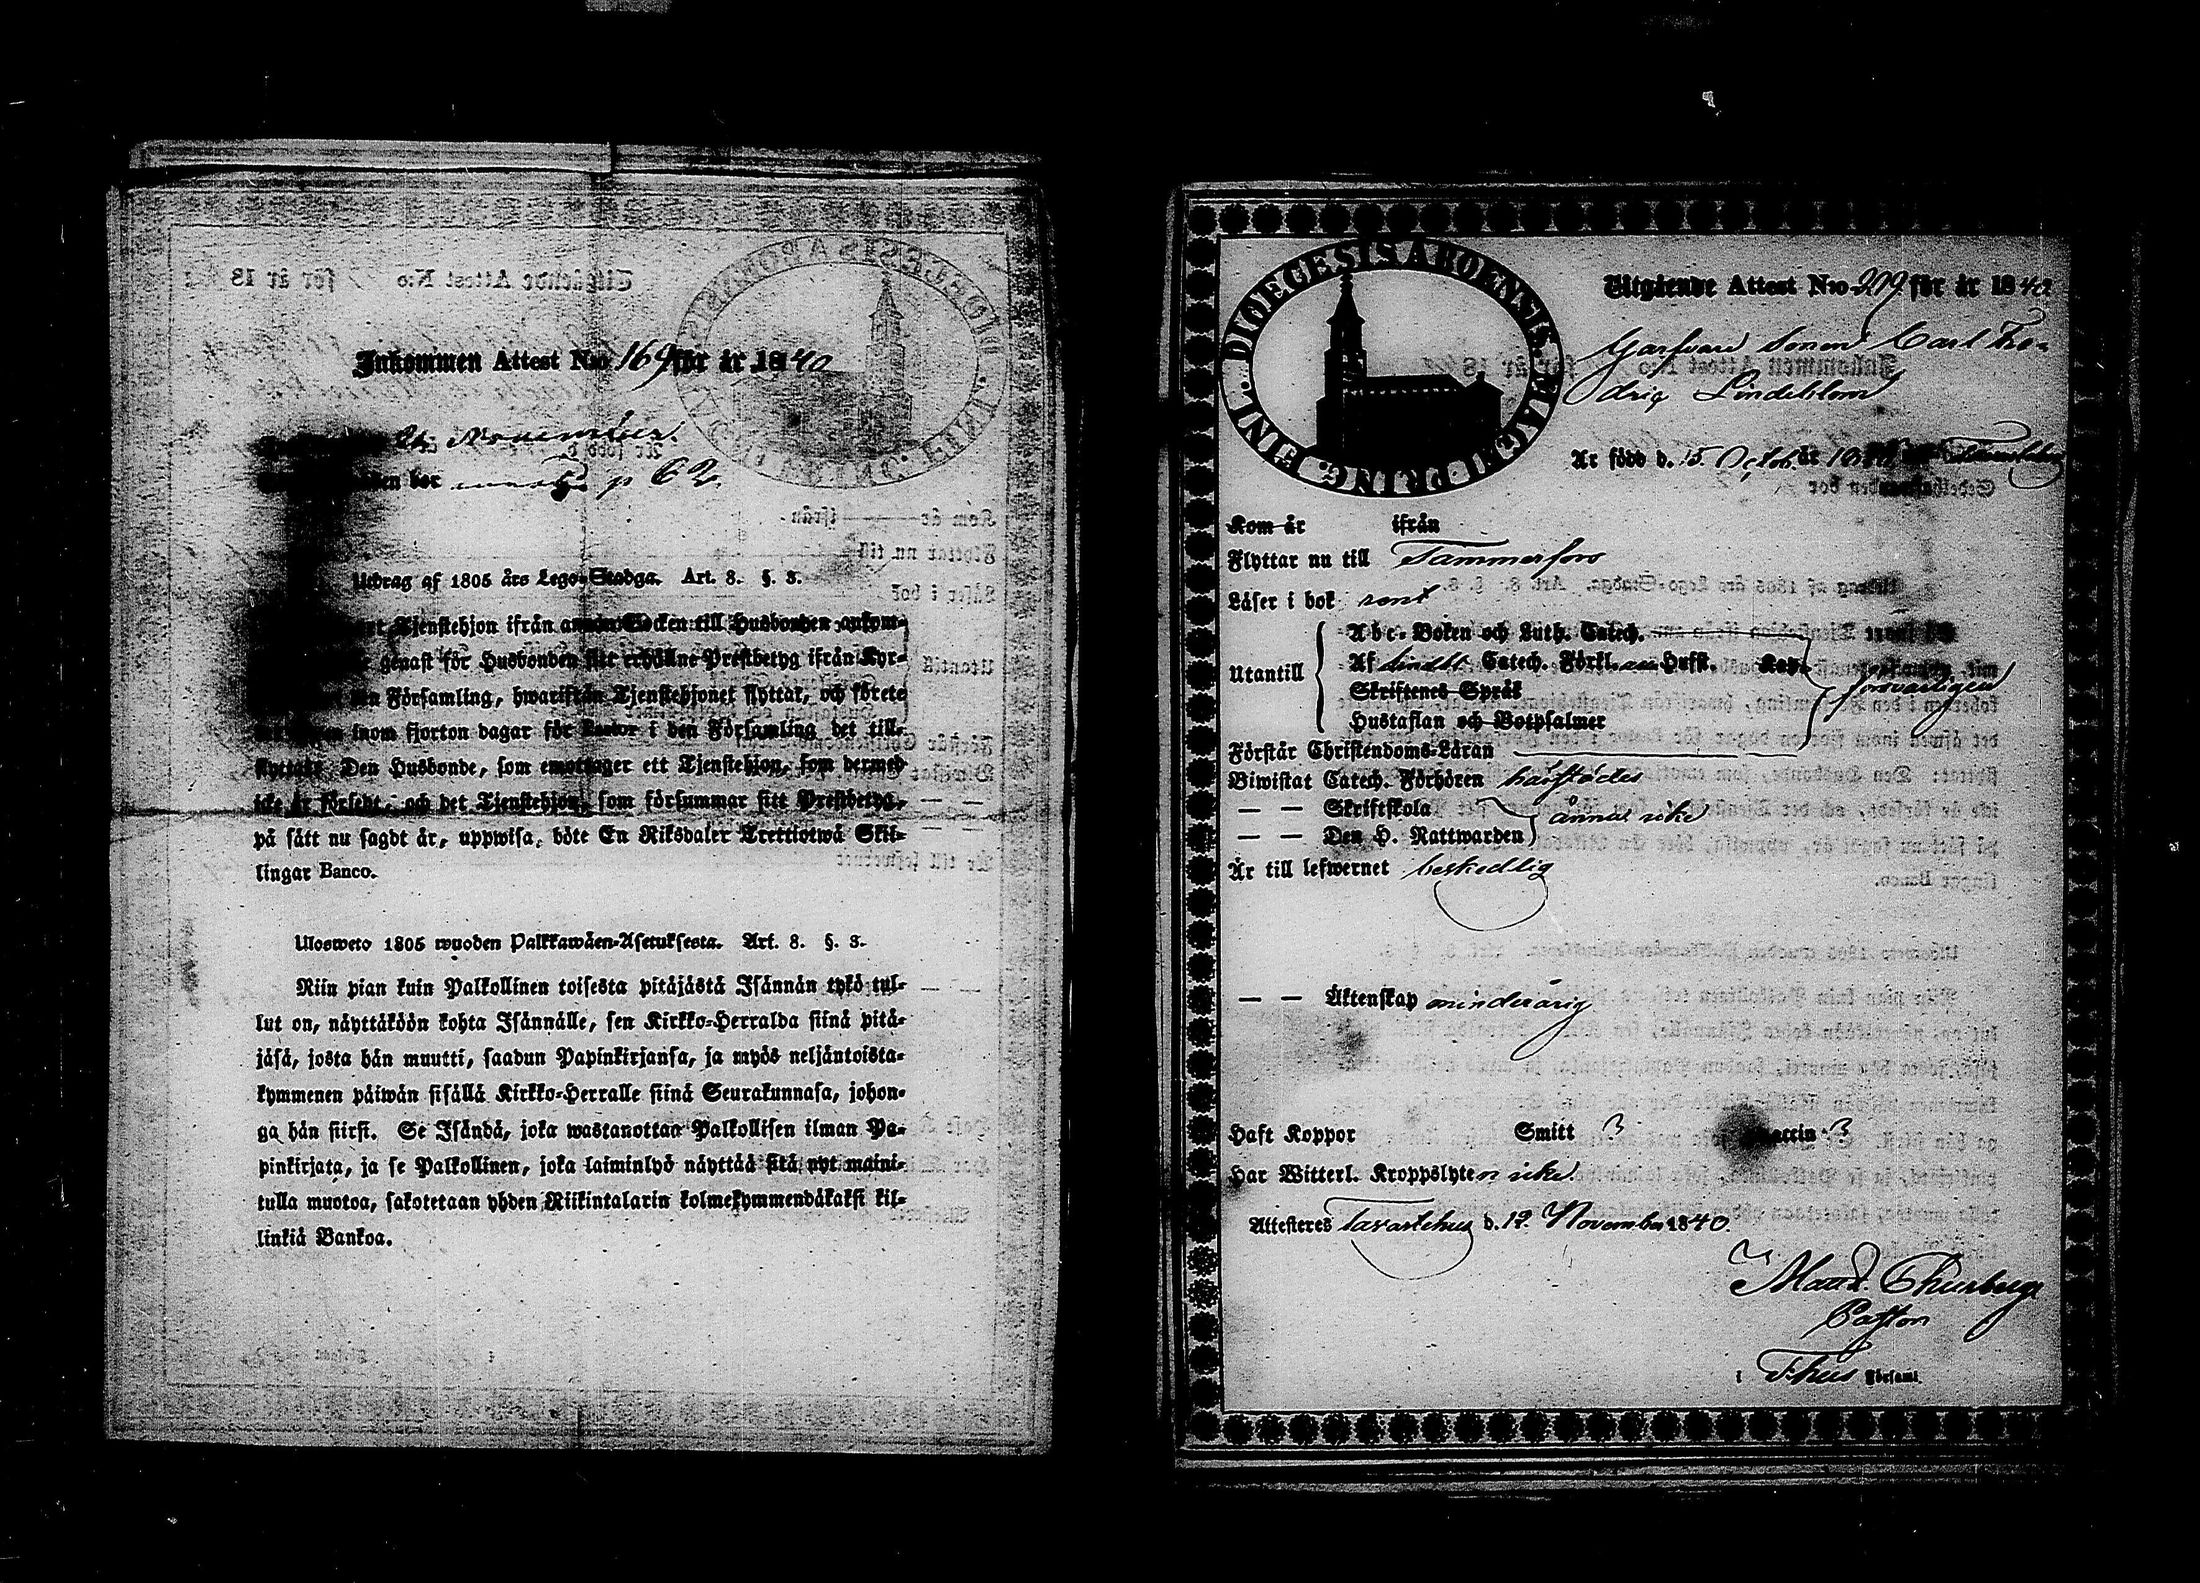 Inkommen Attest N:o 169 för år 1840
November.
p 62.
Utdrag af 1805 års Lego-Stadga. Art. 8. §. 3.
Tjenstehjon ifrån annan Socken till Husbonden ankom-
genast för Husbonden sitt erhållne Prestbetyg ifrån Kyr-
Församling, hwarifrån Tjenstehjonet flyttat, och förete
inom fjorton dagar för Pastor i den Församling det till-
flyttat: Den Husbonde, som emottager ett Tjenstehjon, som dermed
icke är försedt, och det Tjenstehjon, som försummar sitt Prestbetyg,
på sätt nu sagdt är, uppwisa, böte En Riksdaler Trettiotwå Skil-
lingar Banco.
Ulosweto 1805 wuoden Palkkawäen-Asetuksesta. Art. 8. §. 3.
Niin pian kuin Palkollinen toisesta pitäjästä Isännän tykö tul-
lut on, näyttäköön kohta Isännälle, sen Kirkko-Herralda siinä pitä-
jäsä, josta hän muutti, saadun Papinkirjansa, ja myös neljäntoista-
kymmenen päiwän sisällä Kirkko-Herralle siinä Seurakunnasa, johon-
ga hän siirsi. Se Isändä, joka wastanottaa Palkollisen ilman Pa-
pinkirjata, ja se Palkollinen, joka laiminlyö näyttää sitä nyt maini-
tulla muotoa, sakotetaan yhden Riikintalarin kolmekymmendäkaksi kil-
linkiä Bankoa.
DIOECESIS ABOENSIS. MAGNI. PRINC. FINL.
Utgående Attest N:o 209 för år 1840
Garfvare Sonen Carl Fre-
dric Lindeblom
Är född d. 15 Octob. år
Kom år ifrån
Flyttar nu till Tammerfors
Läser i bok rent
Abc-Boken och Luth. Catech.
Utantill Af Lindbl. Catech. Förkl. Hufst. Kap.
Skriftenes Språk försvarligen
Hustaflan och Botpsalmer
Förstår Christendoms-Läran
Biwistat Catech. Förhören härstädes
— — Skriftskola ännu icke
— — Den H. Nattwarden
Är till lefwernet beskedlig
— — Äktenskap minderårig
Haft Koppor Smitt 3 Vaccin 3
Har Witterl. Kroppslyten icke
Attesteres Tavastehus d. 12. November 1840.
Matts. Thurberg
Pastor
i T:hus Församl.